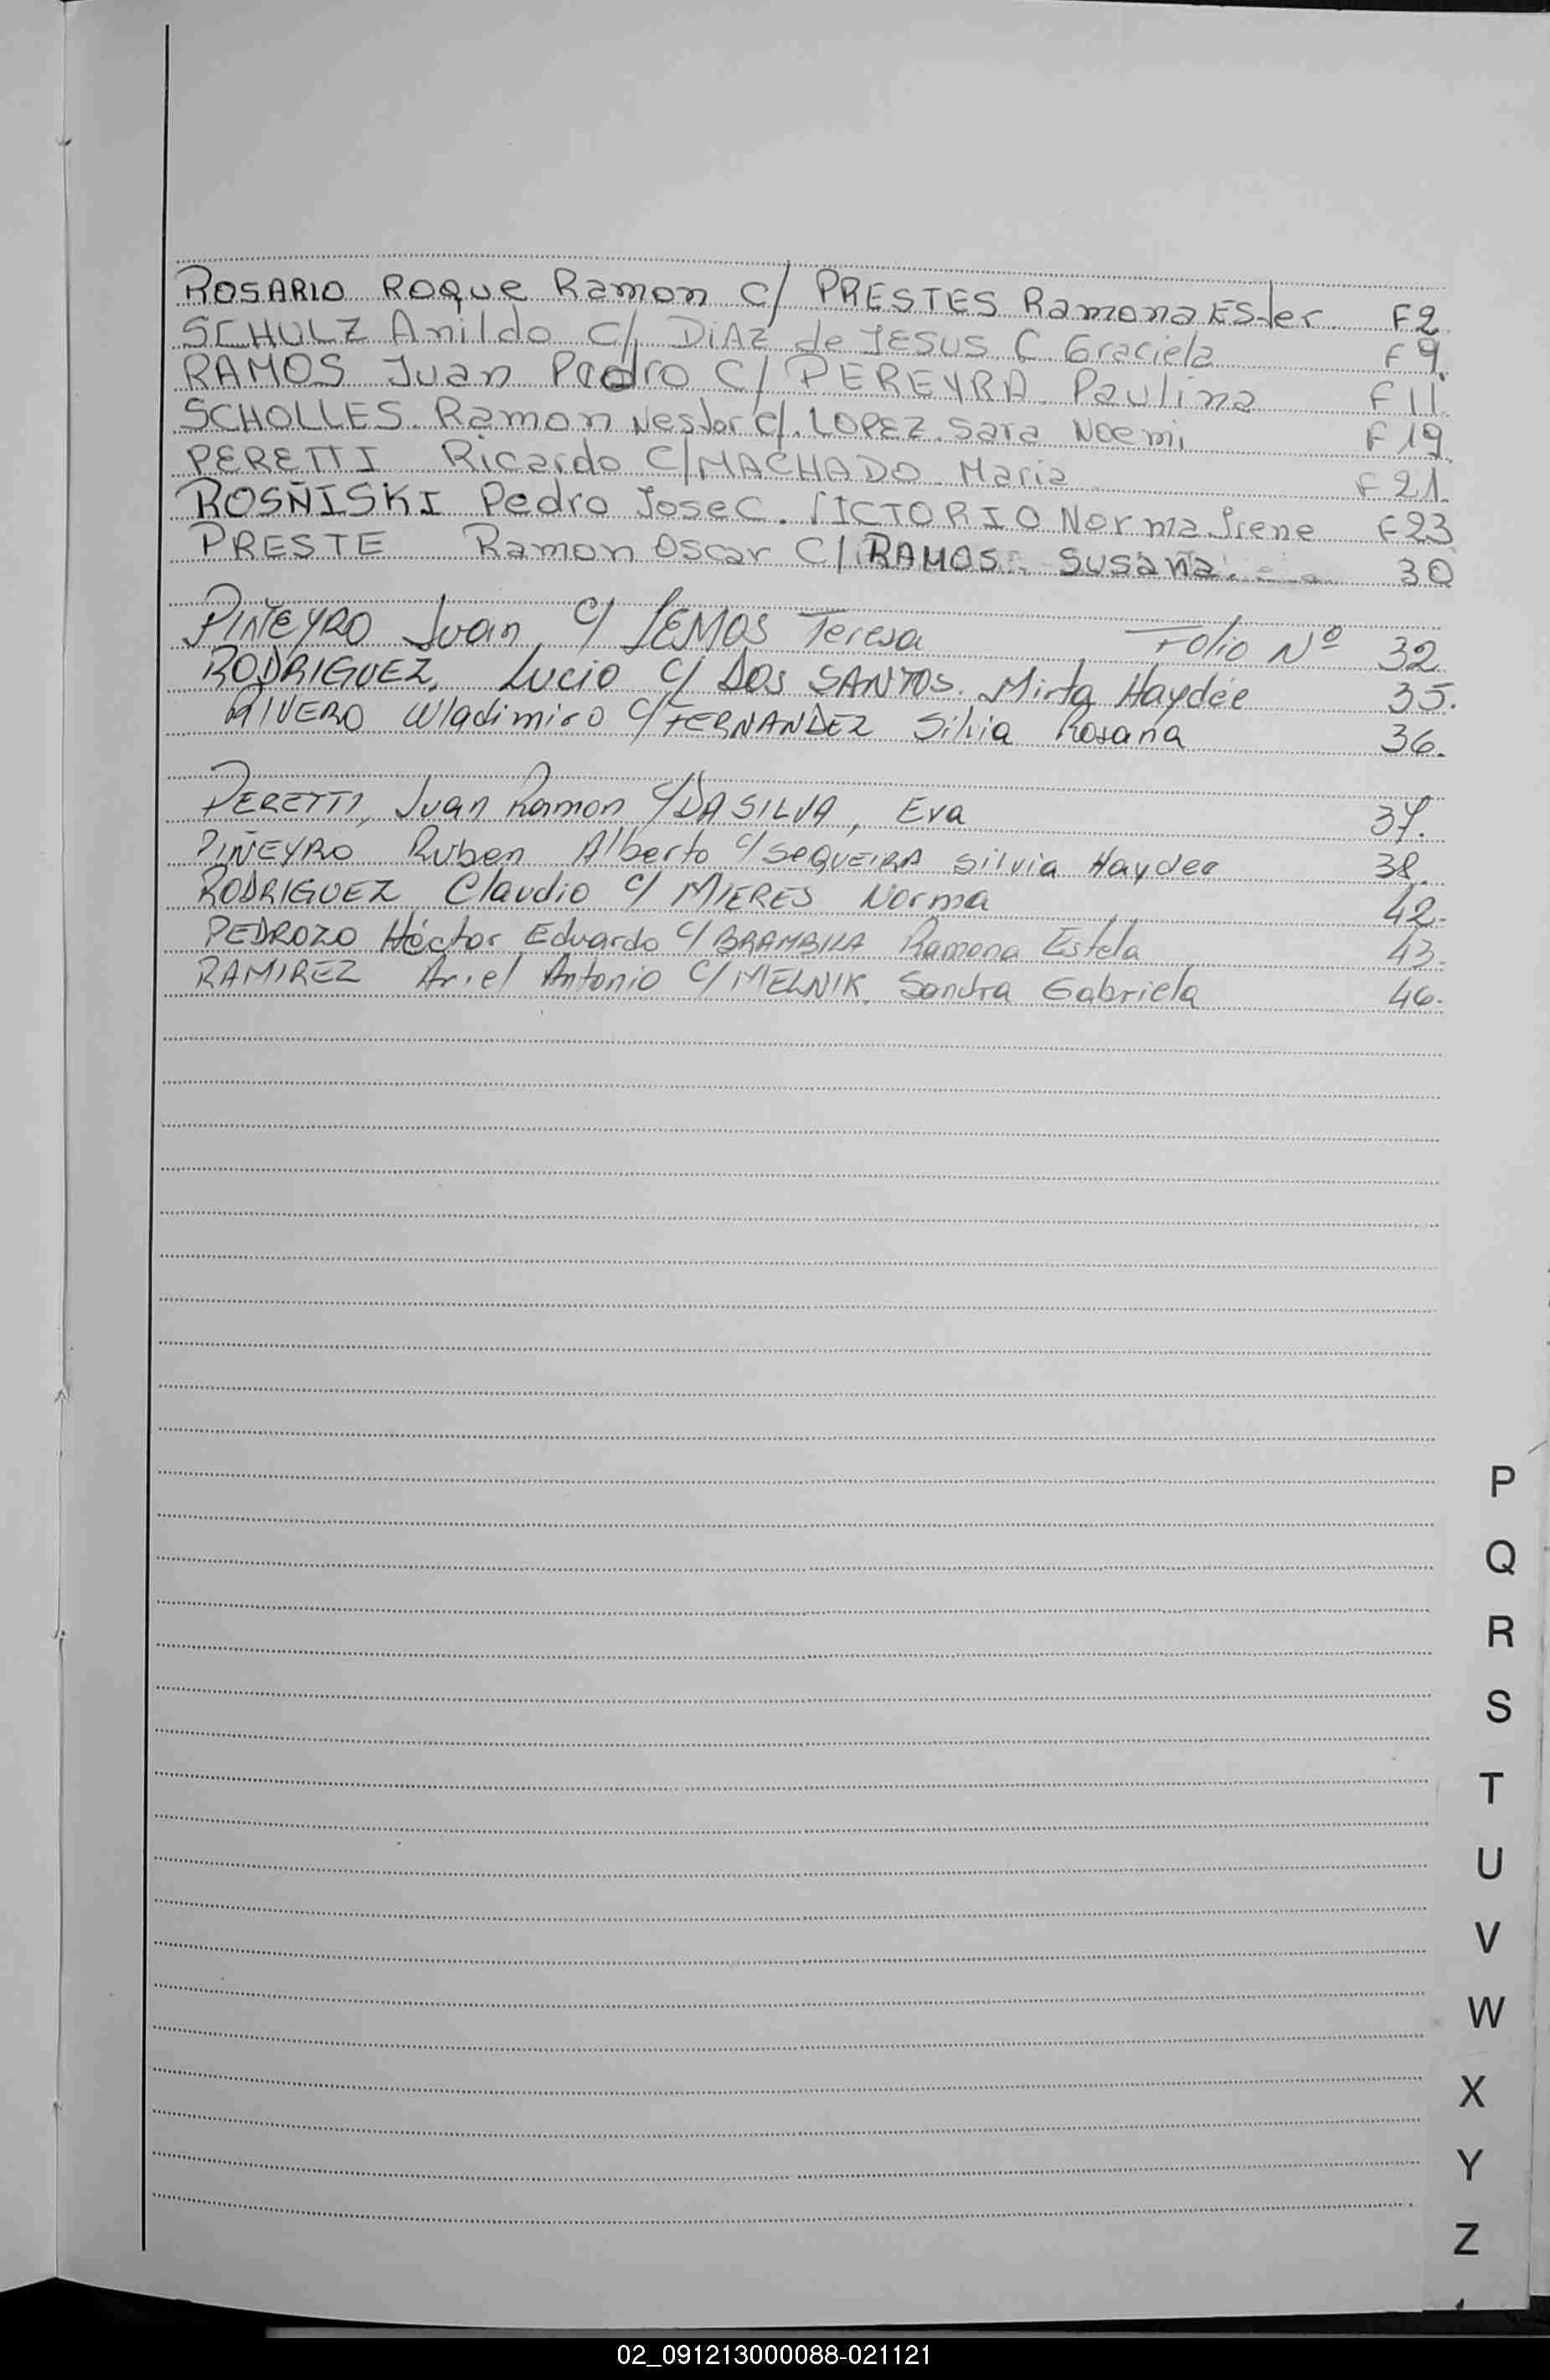 ROSARIO Roque Ramon C/ PRESTES Ramona Ester. F2
SCHULZ Anildo C/ DiAZ de JESUS C Graciela F 9
RAMOS Juan Pedro C/ PEREYRA Paulina F 11
SCHOLLES. Ramon Nestor c/. LOPEZ. Sara Noemi F 19
PERETTI Ricardo C/ MACHADO Maria F 21
ROSÑISKI Pedro Jose C. VICTORIO Norma Irene F23
PRESTE Ramon Oscar C/ RAMOS Susana. 30
PIÑEYRO Juan c/ LEMOS Teresa Folio Nº 32
RODRIGUEZ, Lucio c/ DOS SANTOS. Mirta Haydée 35.
RIVERO Wladimiro c/ FERNANDEZ Silvia Rosana 36.
PERETTI, Juan Ramon c/ DA SILVA, Eva 37.
PIÑEYRO Ruben Alberto c/ SEQUEIRA Silvia Haydee 38.
RODRIGUEZ Claudio c/ MIERES Norma 42.
PEDROZO Héctor Eduardo c/ BRAMBILA Ramona Estela 43.
RAMIREZ Ariel Antonio c/ MELNIK, Sandra Gabriela 46.
P
Q
R
S
T
U
V
W
X
Y
Z
02_091213000088-021121